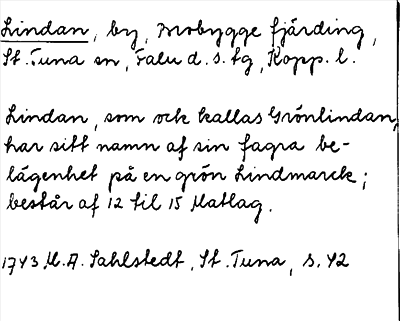 Lindan, by, Mobygge fjärding,
St. Tuna sn, Falu d. s. tg, Kopp. l.
Lindan, som ock kallas Grönlindan,
har sitt namn af sin fagra be-
lägenhet på en grön Lindmarck;
består af 12 til 15 Matlag.
1743 M. A. Sahlstedt, St. Tuna, s. 42